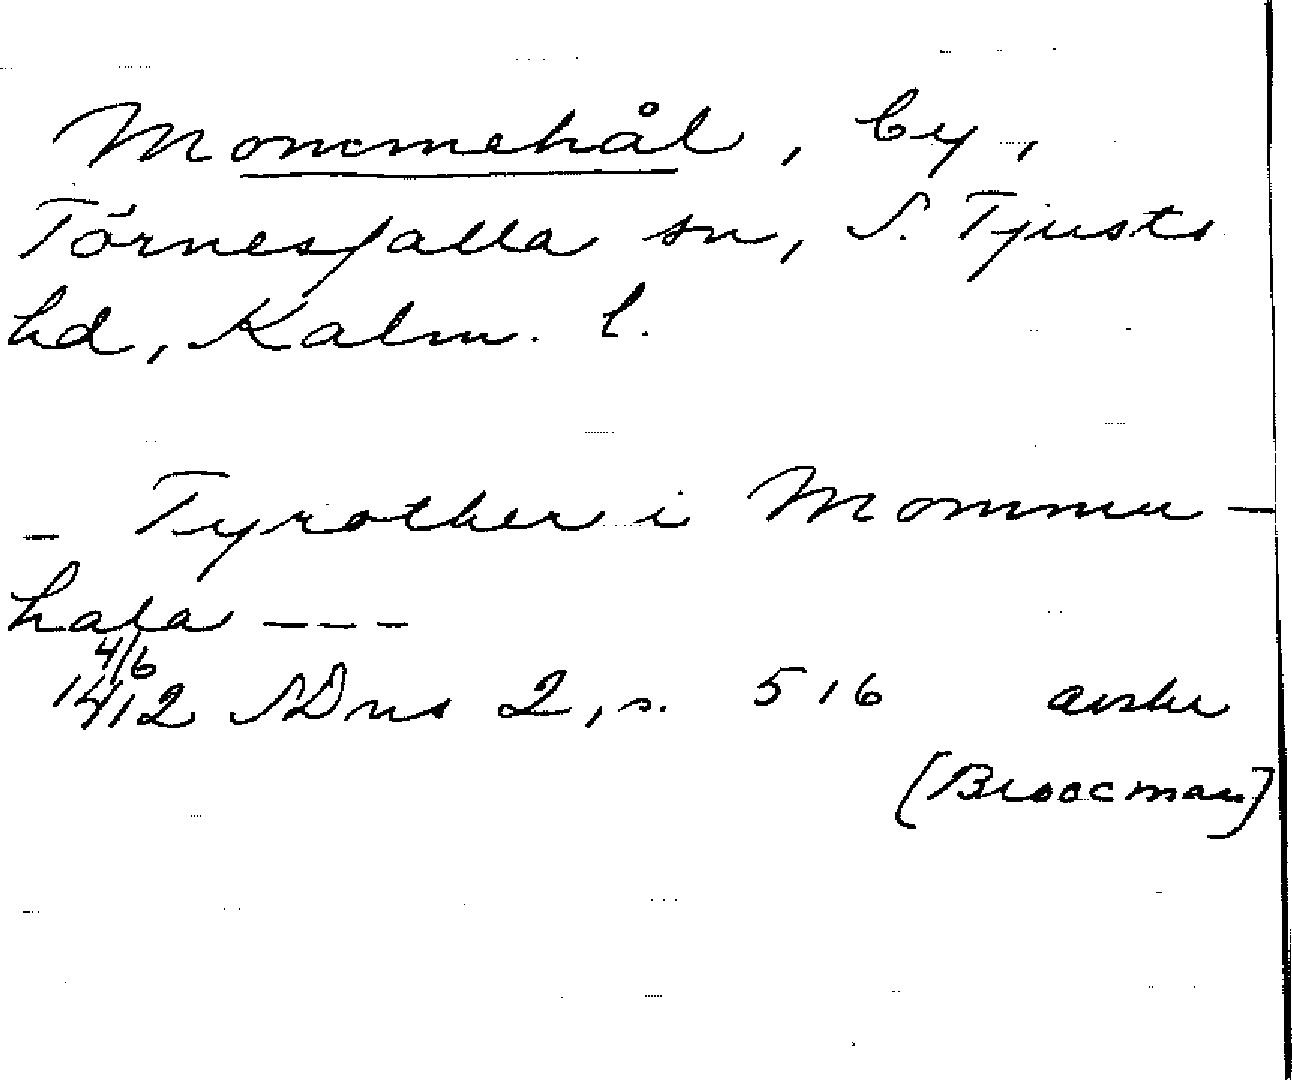 Mommehål, by,
Törnesfalla sn, S. Tjusts
hd, Kalm. l.
– Tyrother i Mommu-
hala ---
4/6
1412 SDns 2, s. 516 avskr
[Broocman]